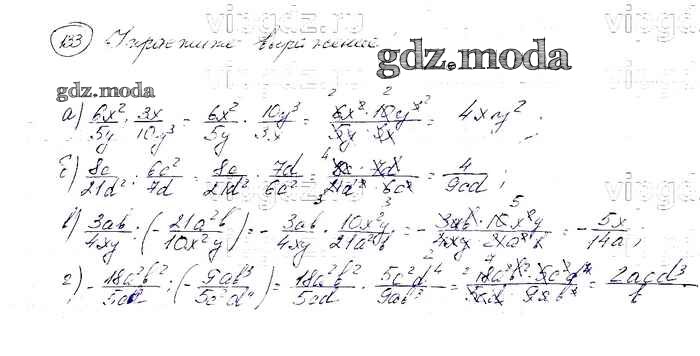 133 Упростите выражение
gdz.moda
gdz.moda
а) 6x²/5y : 3x/10y³ = 6x²/5y · 10y³/3x = 6x² · 10y³/5y · 3x = 4xy²;
б) 8c/21d² : 6c²/7d = 8c/21d² · 7d/6c² = 8c · 7d/21d² · 6c² = 4/9cd;
в) 3ab/4xy : (- 21a²b/10x²y) = - 3ab/4xy · 10x²y/21a²b = - 3ab · 10x²y/4xy · 21a²b = - 5x/14a;
г) - 18a²b²/5cd : (- 9ab³/5c²d⁴) = 18a²b²/5cd · 5c²d⁴/9ab³ = 18a²b² · 5c²d⁴/5cd · 9ab³ = 2acd³/b